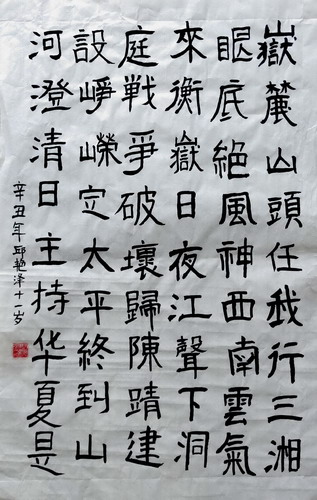 嶽麓山頭任我行三湘
眼底絕風神西南雲氣
來衡嶽日夜江聲下洞
庭戦爭破壞歸陳蹟建
設崢嶸定太平終到山
河澄清日主持华夏是
辛丑年邱艳泽十一岁